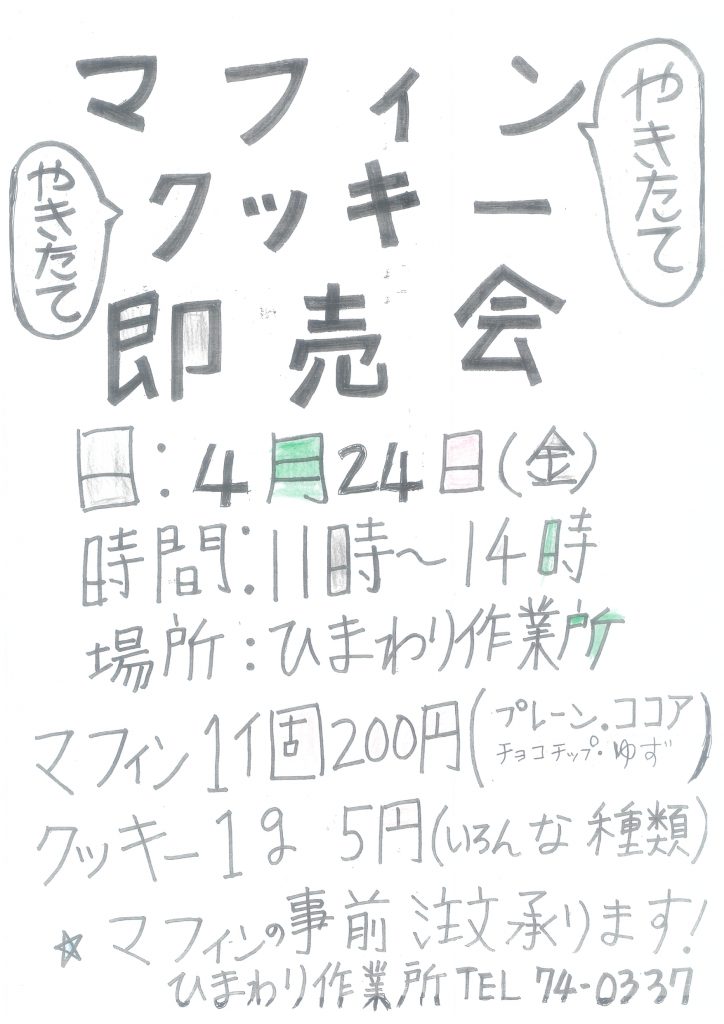 マフィン
やきたて
クッキー
やきたて
即売会
日:4月24日(金)
時間:11時~14時
場所:ひまわり作業所
マフィン1個200円(プレーン.ココア
チョコチップ・ゆず)
クッキー1g 5円(いろんな種類)
☆マフィンの事前注文承ります!
ひまわり作業所TEL 74-0337